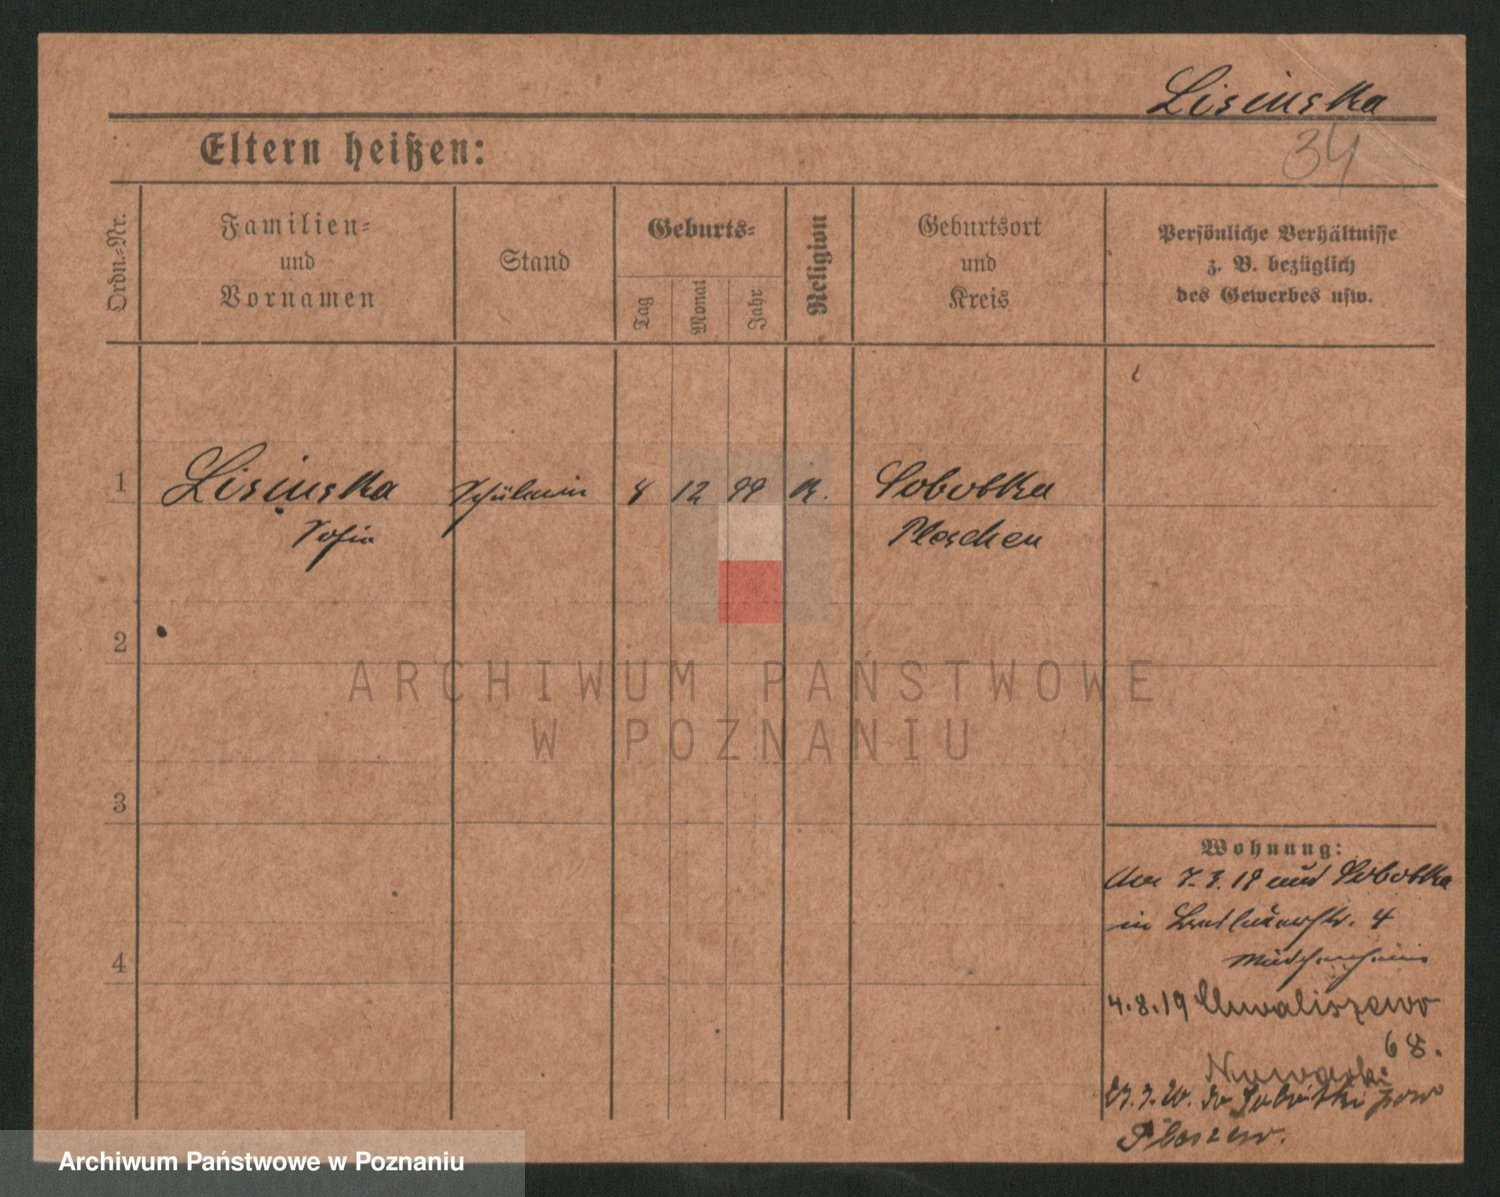 Lisinska
34
Eltern heißen:
Ordn.-Nr.
Familien-
und
Vornamen
Stand
Geburts-
Tag
Monat
Jahr
Religion
Geburtsort
und
Kreis
Persönliche Verhältnisse
z. B. bezüglich
des Gewerbes usw.
1 Lisinska Schülerin 8 12 99 k. Sobotka
Sofia Pleschen
2
ARCHIWUM PAŃSTWOWE
W POZNANIU
3
Wohnung:
7.3.19 aus Sobotka
in 4
4
Mädchenheim
4.8.19 Chwaliszewo
68.
Nawrocki
do Sobótki pow
Pleszew.
Archiwum Państwowe w Poznaniu